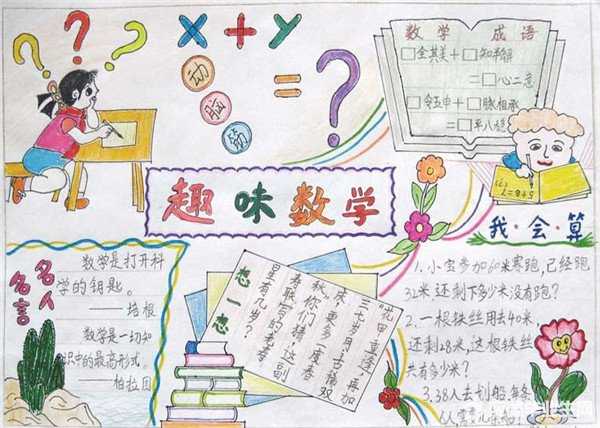 ? ? ?
X+Y
动
脑
筋
= ?
数学 成语
□全其美+□知半解
=□心二意
□令五申+□脉相承
=□平八稳
趣味数学
我·会·算
1.小宝参加60米寒跑,已经跑
32米还剩下多少米没有跑?
2.一根铁丝用去40米
还剩28米,这根铁丝
共有多少米?
3.38人去划船,每条
名人
名言
数学是打开科
学的钥匙。
——培根
数学是一切知
识中的最高形式。
——柏拉图
想一想
重逢,再加
三七岁月;古稀双
庆,更多一度春
秋。你们猜,这副
寿联写的老寿
星有几岁?